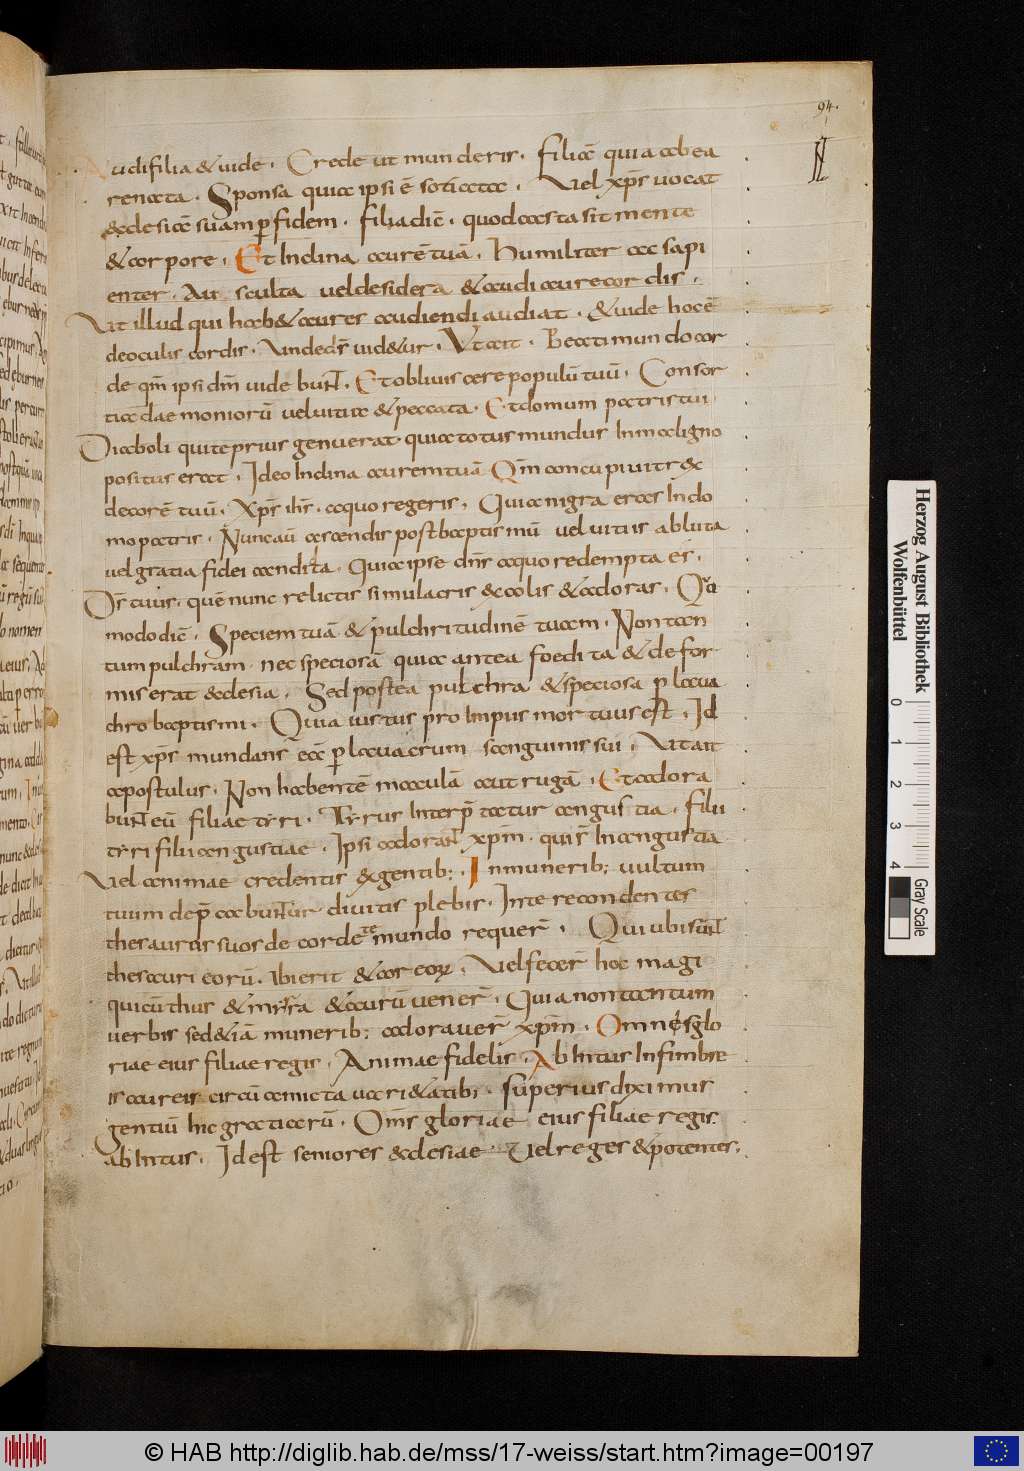 94.
Audi filia & uide. Crede ut munderis. filiā quia ab ea
renata. Sponsa quia ipsi ē sotiata. Vel xp̄s uocat
ecclesiā suam p fidem. filia dic̄. quod casta sit mente
& corpore. Et Inclina aurē tuā. Humiliter ac sapi
enter. Au sculta uel desidera & audi aure cordis.
Vt illud qui hab& aures audiendi audiat. & uide hoc ē
de oculis cordis. Unde dr̄ uid&ur. Vt ait. Beati mundo cor
de qm̄ ipsi dm̄ uidebunt. Et obliuiscere populū tuū. Consor
tia daemoniorū uel uitia & peccata. Et domum patris tui
Diaboli qui te prius genuerat. quia totus mundus In maligno
positus erat. Ideo Inclina aurem tuā Qm̄ concupiuit rex
decorē tuū. Xp̄s ih̄s. a quo regeris. Quia nigra eras In do
mo patris. Nunc aū ascendis post baptismū uel uitiis abluta
uel gratia fidei candita. Quia ipse dn̄s a quo redempta es.
Ds̄ tuus. quē nunc relictis simulacris excolis & adoras. Quo
modo dic̄. Speciem tuā & pulchritudinē tuam. Non tan
tum pulchram nec speciosā quia antea foedita & defor
mis erat ecclesia. Sed postea pulchra & speciosa p laua
chro baptismi. Quia iustus pro Impiis mortuus est. Id
est xp̄s mundans eā p lauacrum sanguinis sui. Vt ait
apostulus. Non habentē maculā aut rugā. Et adora
bunt eū filiae tyri. Tyrus Interp̄tatur angustia. filii
tyri filii angustiae. Ipsi adorant xpm̄. qui s̄ In angustia
Vel animae credentis ex gentib; . In munerib; uultum
tuum dep̄cabuntur diuitis plebis. Inte recondentes
thesauros suos de corde te mundo requer̄. Qui ubi sunt
thesauri eorū. Ibi erit & cor eoꝝ. Vel fecer̄ hoc magi
qui cū thus & myrra & aurū vener̄. Quia non tantum
uerbis sed &iā munerib; adorauer̄ xpm̄. Omnes glo
riae eius filiae regis. Animae fidelis. Ab Intus In fimbre
is aureis circū amicta uari&atib; . superius diximus
gentiū hic graticarū. Om̄s gloriae eius filiae regis.
ab Intus. Id est seniores ecclesiae. Vel reges & potentes.
Herzog August Bibliothek
Wolfenbüttel
0 1 2 3 4
Gray Scale
© HAB http://diglib.hab.de/mss/17-weiss/start.htm?image=00197